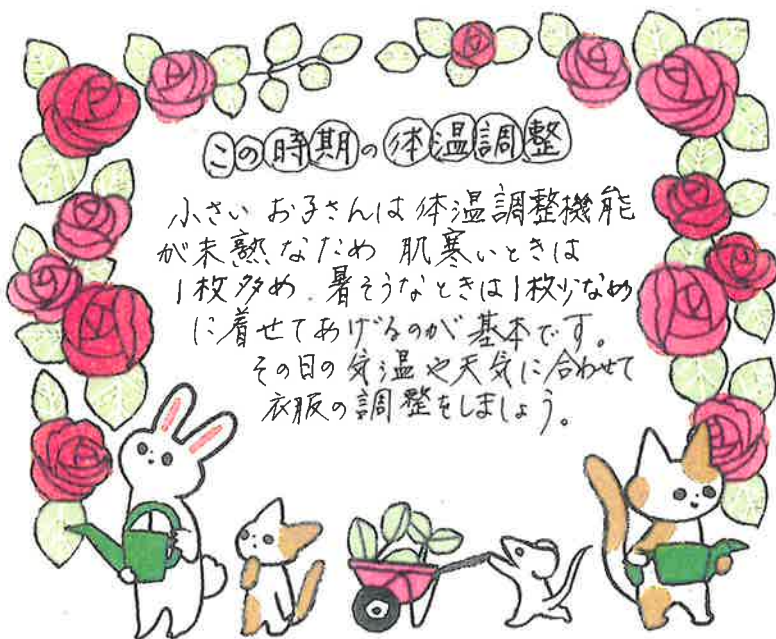 この時期の体温調整
小さい お子さんは 体温調整機能
が未熟なため 肌寒いときは
1枚多め 暑そうなときは1枚少なめ
に着せてあげるのが 基本です。
その日の気温や天気に合わせて
衣服の調整をしましょう。